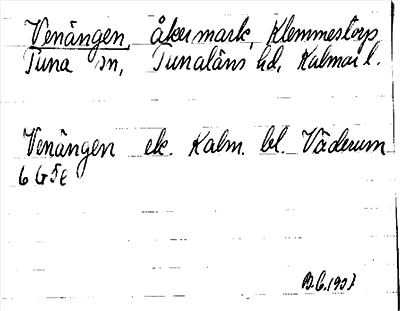 Venängen, åkermark, Klemmestorp
Tuna sn, Tunaläns hd, Kalmar l.
Venängen ek. Kalm. bl. Väderum
6 G 5e
1907